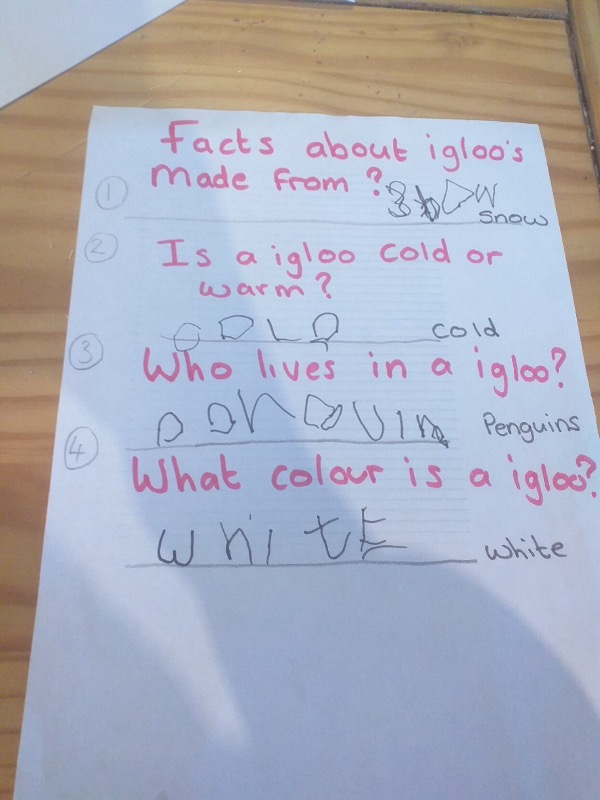 Facts about igloo's
① Made from?
Snow
② Is a igloo cold or
warm?
COLD cold
③ Who lives in a igloo?
Penguins
④ What colour is a igloo?
WhiTE white